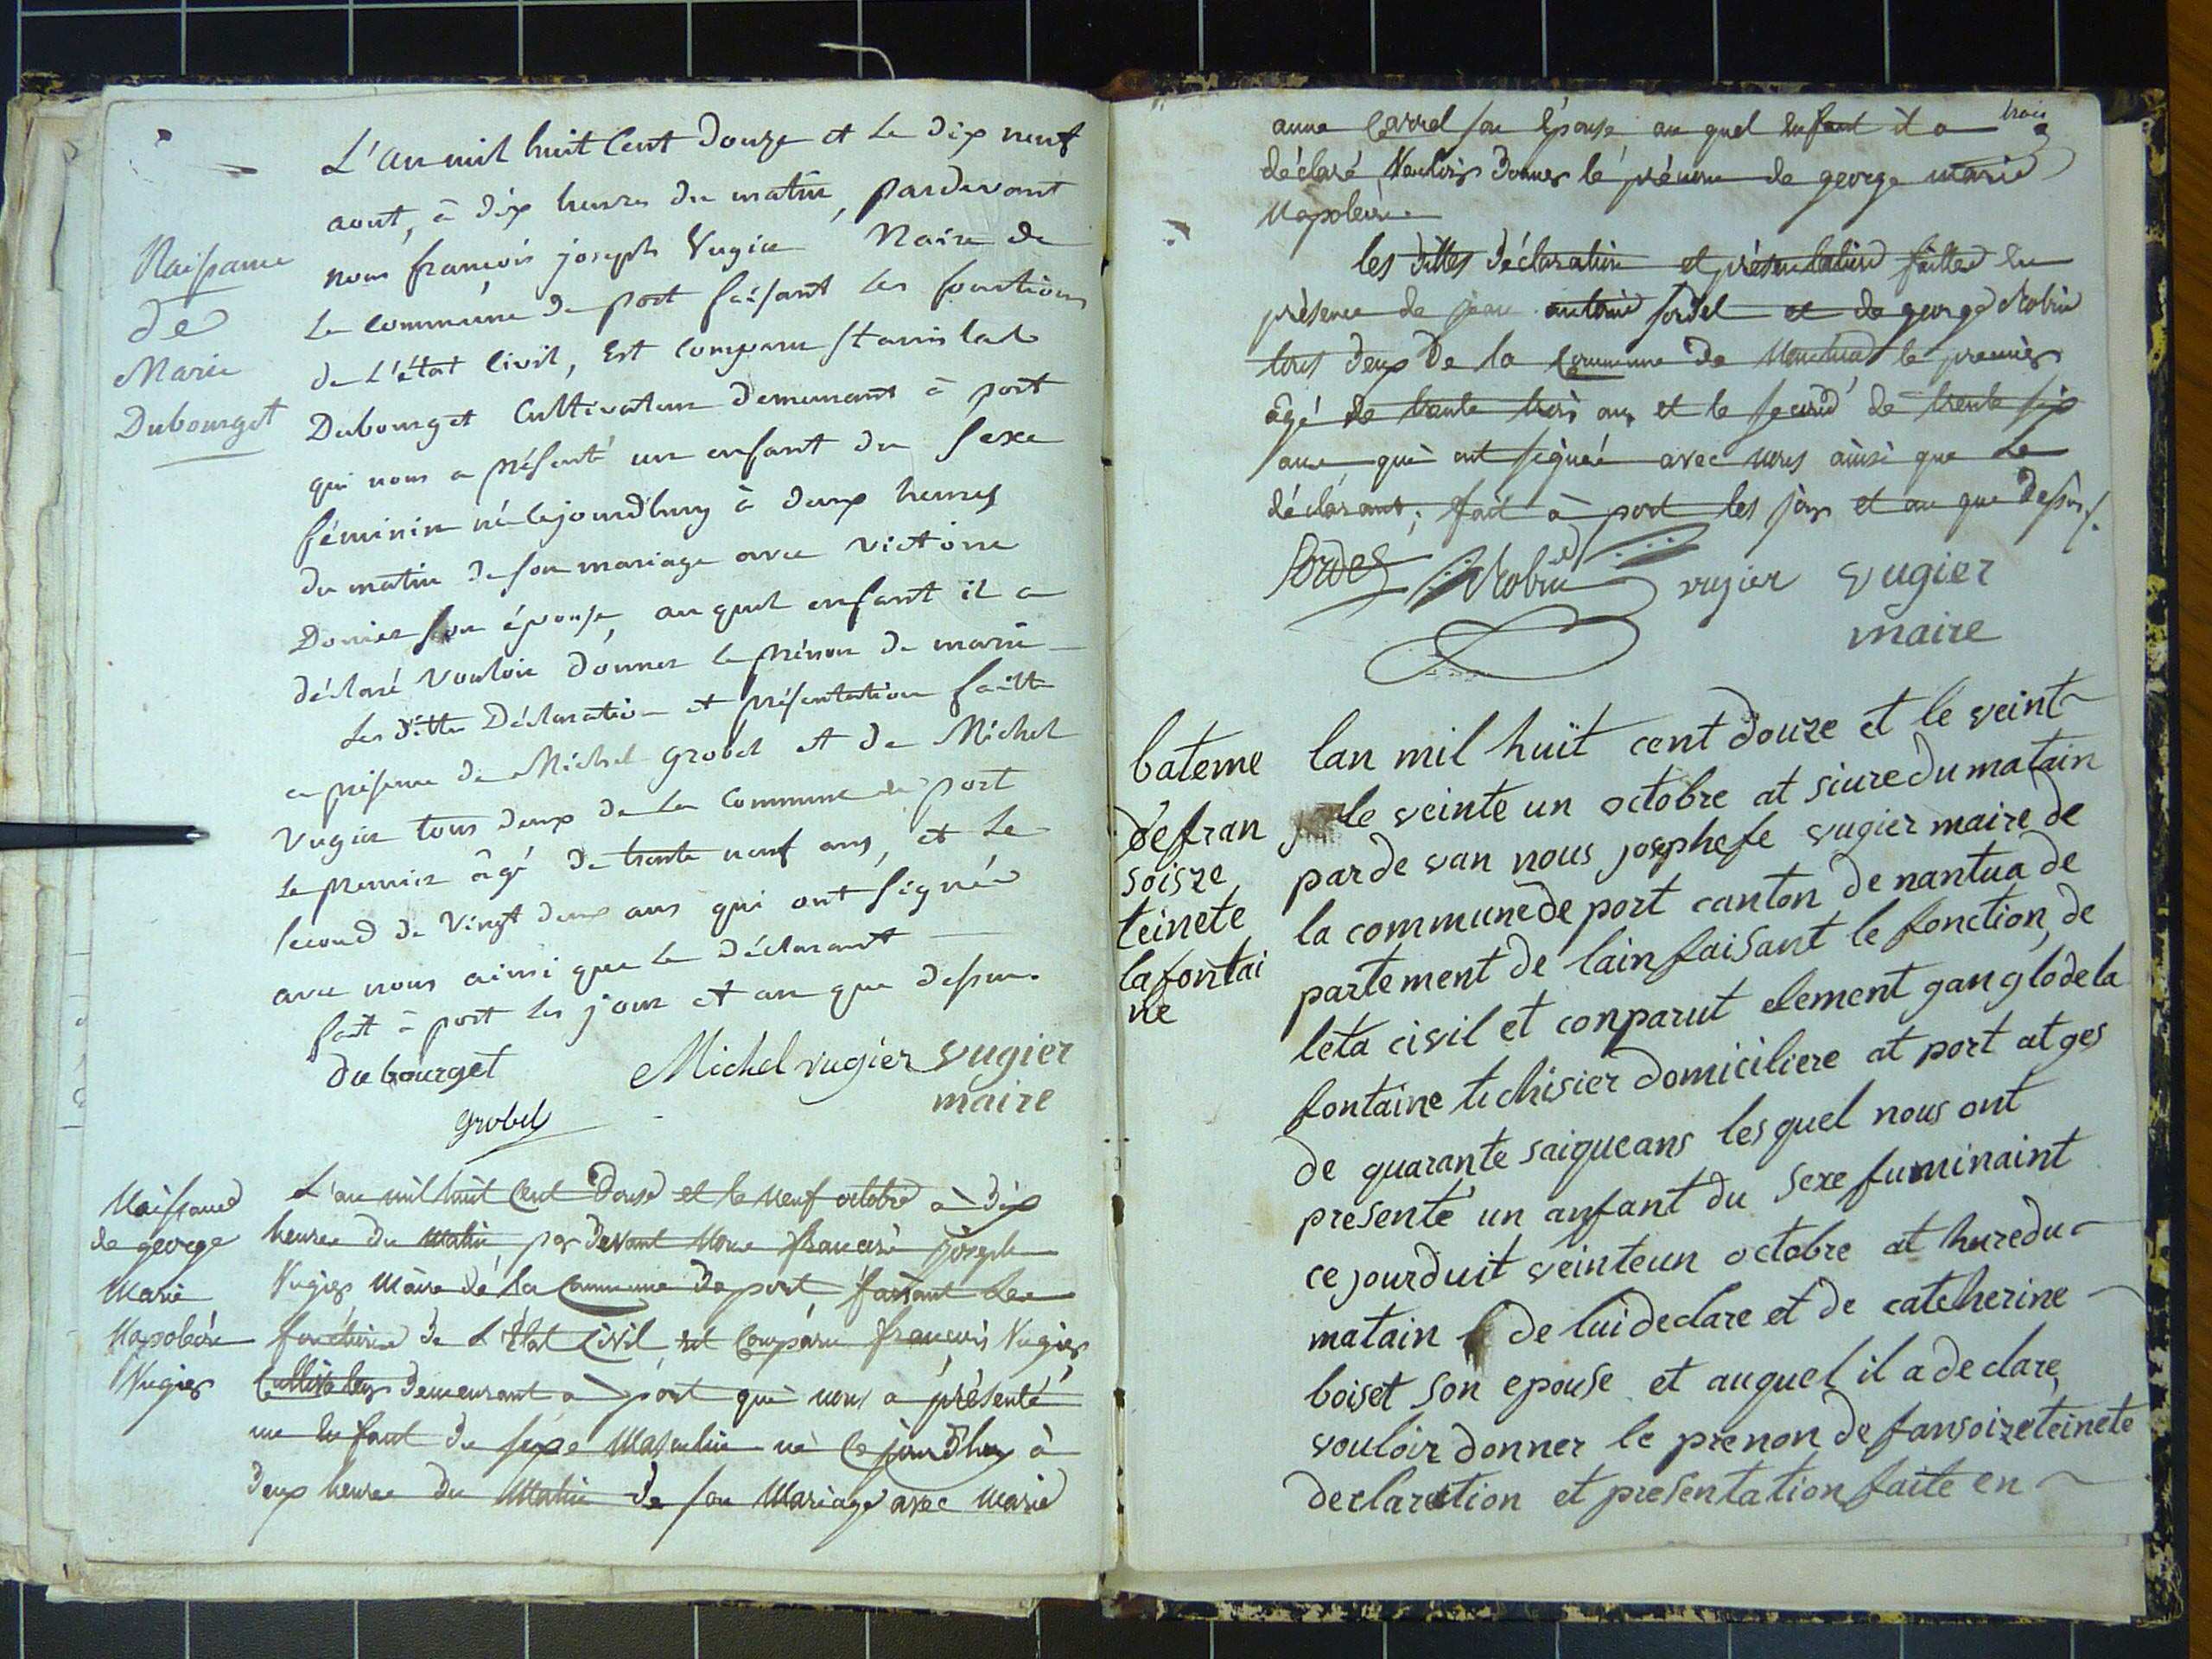 Naissance
de
Marie
Dubourget
L'an mil huit Cent Douze et le dix neuf
aout, à dix heures du matin, pardevant
nous françois joseph Vugier Maire de
la commune de port faisant les fonctions
de L'état Civil, Est comparu Stanislas
Dubourget Cultivateur demeurant à port
qui nous a présenté un enfant du Sexe
féminin né cejourdhuy à deux heures
du matin de son mariage avec victoire
Donier son épouse, au quel enfant il a
déclaré Vouloir donner le prénom de marie
Les ditte Déclaration et présentation faitte
en présence de Michel grobel et de Michel
Vugier tous deux de la Commune de port
le premier âgé de trente neuf ans, et le
second de Vingt deux ans qui ont signée
avec nous ainsi que le déclarant
fait à port les jour et an que dessus.
dubourget Michel vugier vugier
maire
grobel
Naissance
de george
Marie
Napoléon
Vugier
L'an mil huit Cent Douse et le neuf octobre à dix
heures du matin, par devant Nous françois joseph
Vugier Maire de la Commune de port faisant les
fonctions de L'état Civil, est Comparu françois Vugier
Cultivateur demeurant à port qui nous a présenté
un Enfant du sexe Masculin né Ce jourd'huy à
deux heures du Matin de son Mariage avec Marie
trois
anne Carrel son Epouse, au quel Enfant il a
déclaré, Vouloir donner le prénom de george marie
Napoléon
les dittes déclaration et présentation faittes En
présence de jean antoine sordel et de george Robin
tous deux De la Commune de Nantua le premier
âgé de trente trois ans et le second de trente six
ans qui ont signée avec nous ainsi que le
déclarant; fait à port les jour et an que dessus.
Sordel Robin vugier vugier
maire
bateme
de fran
soisze
teinete
lafontai
ne
lan mil huit cent douze et le veint
le veinte un octobre at siure du matain
par de van nous josephefe vugier maire de
la commune de port canton de nantua de
partement de lain faisant le fonction de
leta civil et conparut element gan glodela
fontaine tichisier domiciliere at port at ges
de quarante saigueans les quel nous ont
presenté un anfant du sexe fuminaint
ce jourduit veinteun octobre at hure du
matain de lui declare et de catcherine
boiset son epouse et auquel il a declare
vouloir donner le prenon de fansoizeteinete
declaration et presentation faite en